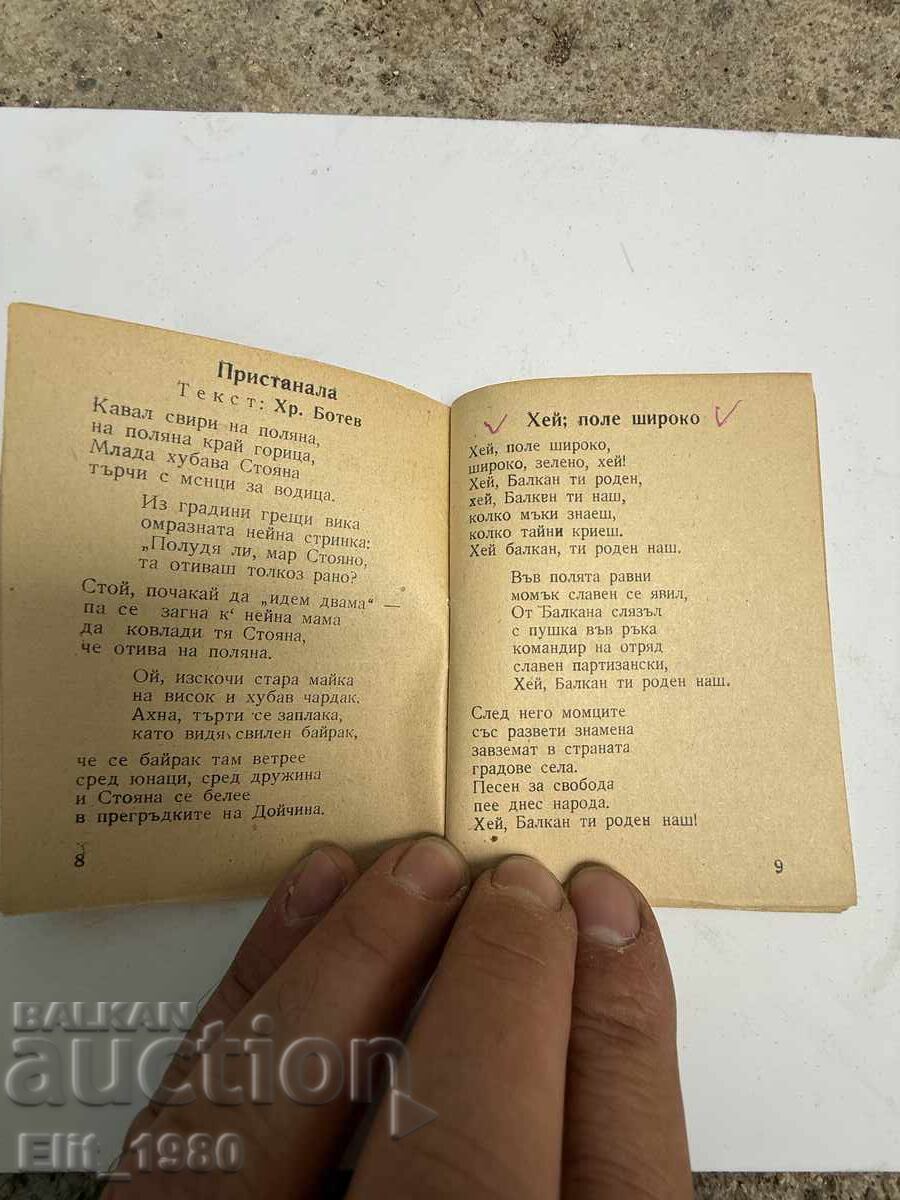 Пристанала
Текст: Хр. Ботев
Кавал свири на поляна,
на поляна край горица,
Млада хубава Стояна
търчи с менци за водица.
Из градини грещи вика
омразната нейна стринка:
„Полудя ли, мар Стояно,
та отиваш толкоз рано?
Стой, почакай да „идем двама“ —
па се загна к' нейна мама
да ковлади тя Стояна,
че отива на поляна.
Ой, изскочи стара майка
на висок и хубав чардак.
Ахна, търти се заплака,
като видя свилен байрак,
че се байрак там ветрее
сред юнаци, сред дружина
и Стояна се белее
в прегръдките на Дойчина.
8
Хей; поле широко
Хей, поле широко,
широко, зелено, хей!
Хей, Балкан ти роден,
хей, Балкен ти наш,
колко мъки знаеш,
колко тайни криеш.
Хей балкан, ти роден наш.
Във полята равни
момък славен се явил,
От Балкана слязъл
с пушка във ръка
командир на отряд
славен партизански,
Хей, Балкан ти роден наш.
След него момците
със развети знамена
завземат в страната
градове села.
Песен за свобода
пее днес народа.
Хей, Балкан ти роден наш!
9
BALKAN
auction
Elit_1980